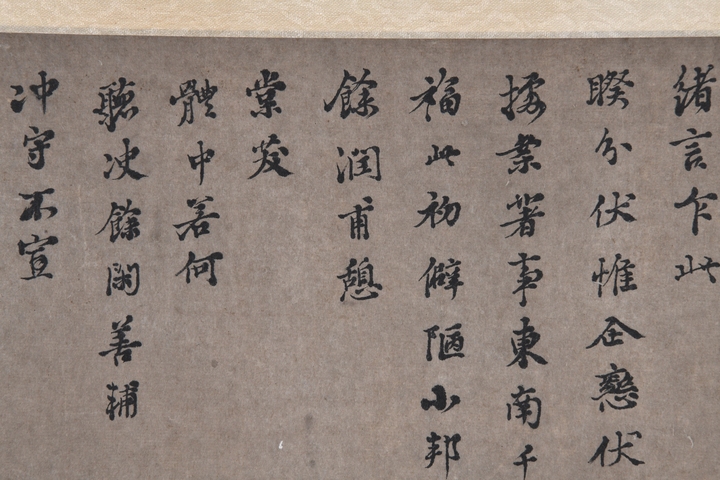 緒言乍此
睽分伏惟企戀伏
署事東南千
福此初僻陋小邦
餘潤甫憩
棠茇
體中若何
聽决餘閑善輔
冲守不宣